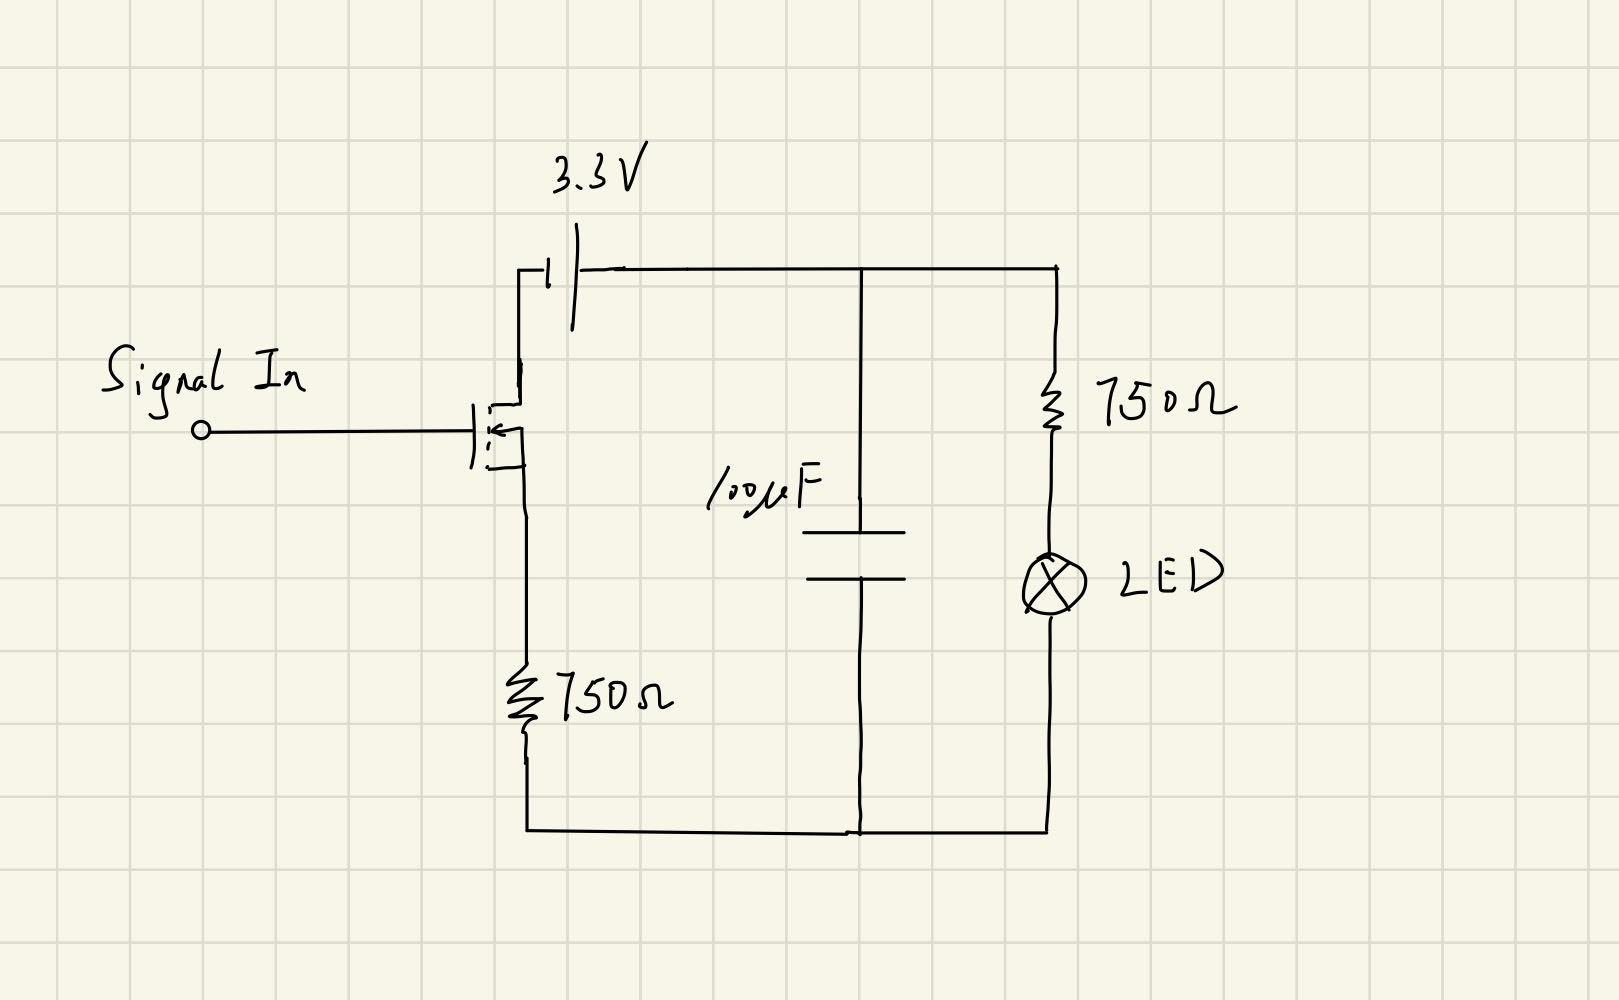 3.3V
Signal In
750Ω
100μF
LED
750Ω